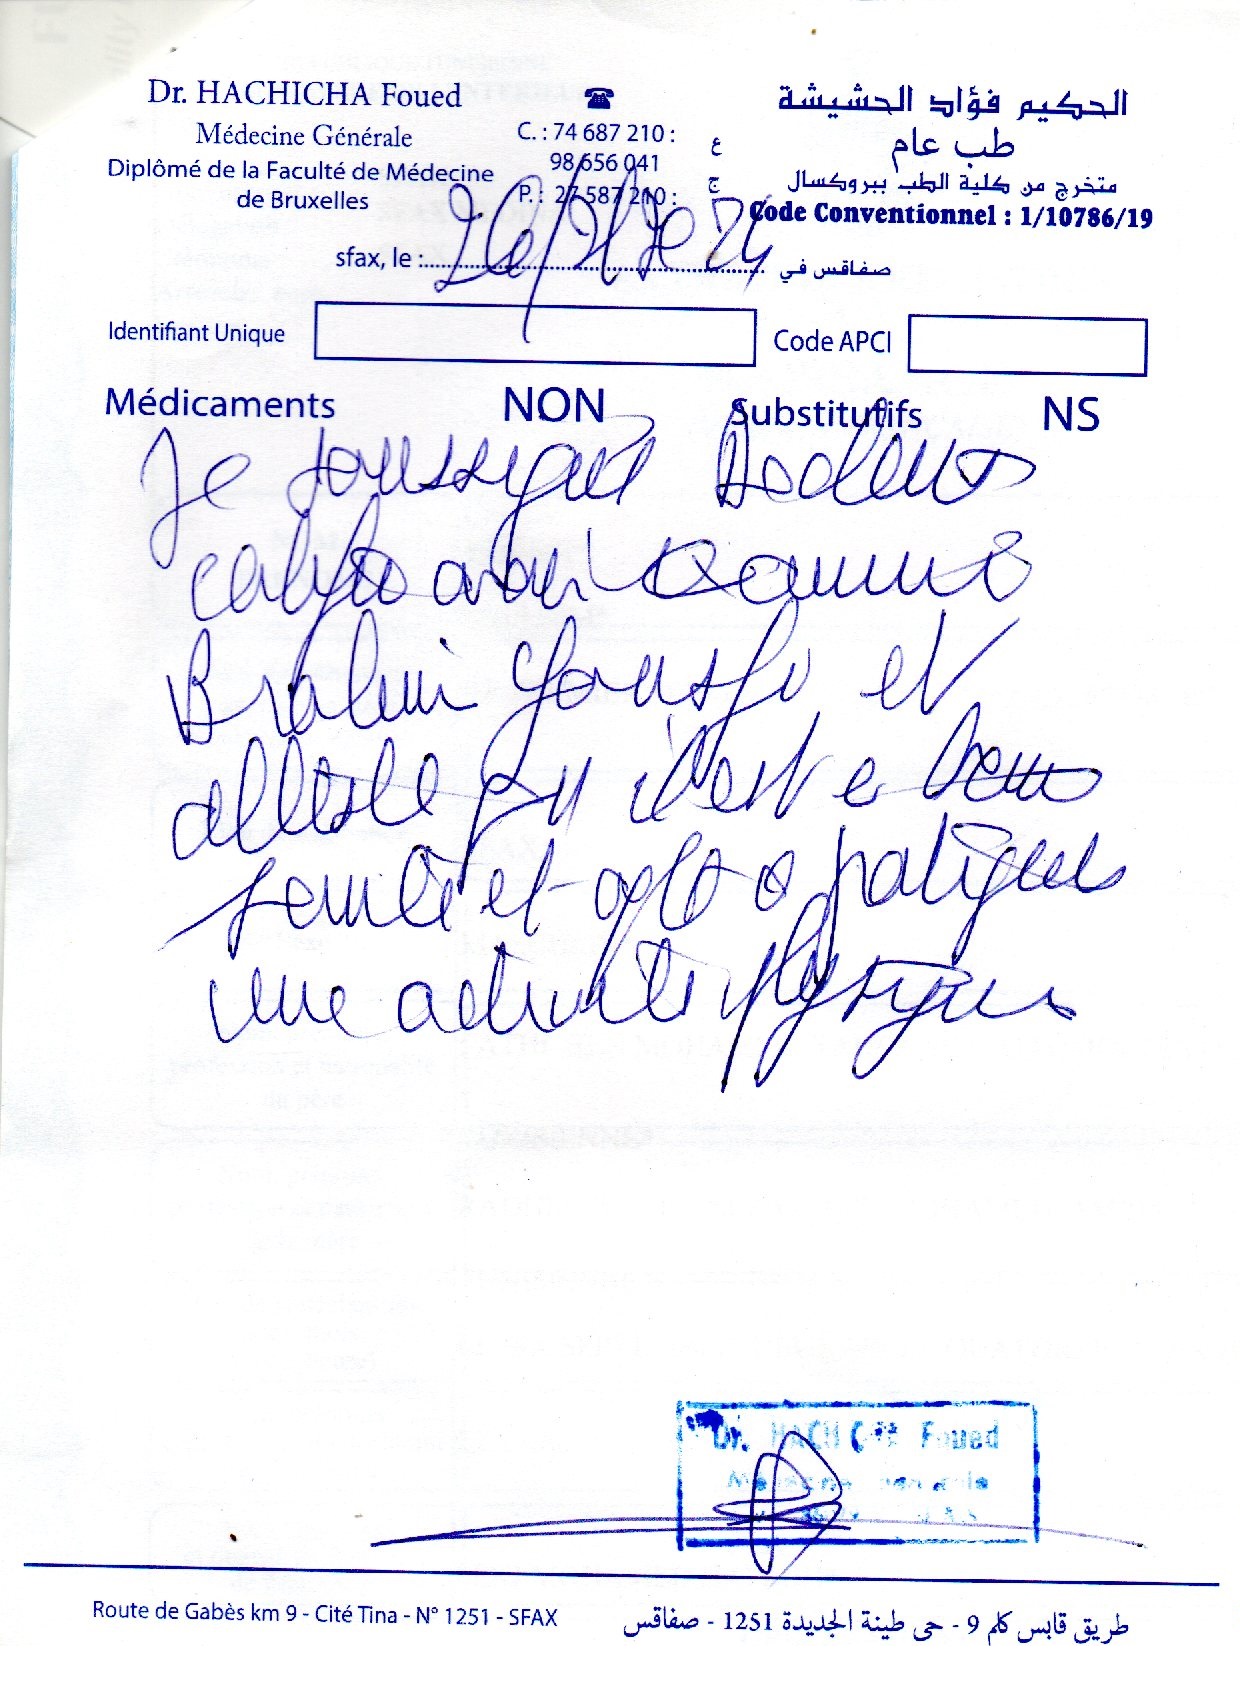 Dr. HACHICHA Foued
Médecine Générale
Diplômé de la Faculté de Médecine
de Bruxelles
C. : 74 687 210 : ع
98 656 041
P. : 27 587 210 : ج
الحكيم فؤاد الحشيشة
طب عام
متخرج من كلية الطب ببروكسال
Code Conventionnel : 1/10786/19
sfax, le : صفاقس في
Identifiant Unique
Code APCI
Médicaments NON Substitutifs NS
Je soussigné Docteur
certifie avoir examiné
Brahim Yousfi et
atteste qu'il est en bonne
santé et apte à pratiquer
une activité physique
Dr. HACHICHA Foued
Route de Gabès km 9 - Cité Tina - N° 1251 - SFAX
طريق قابس كلم 9 - حي طينة الجديدة 1251 - صفاقس